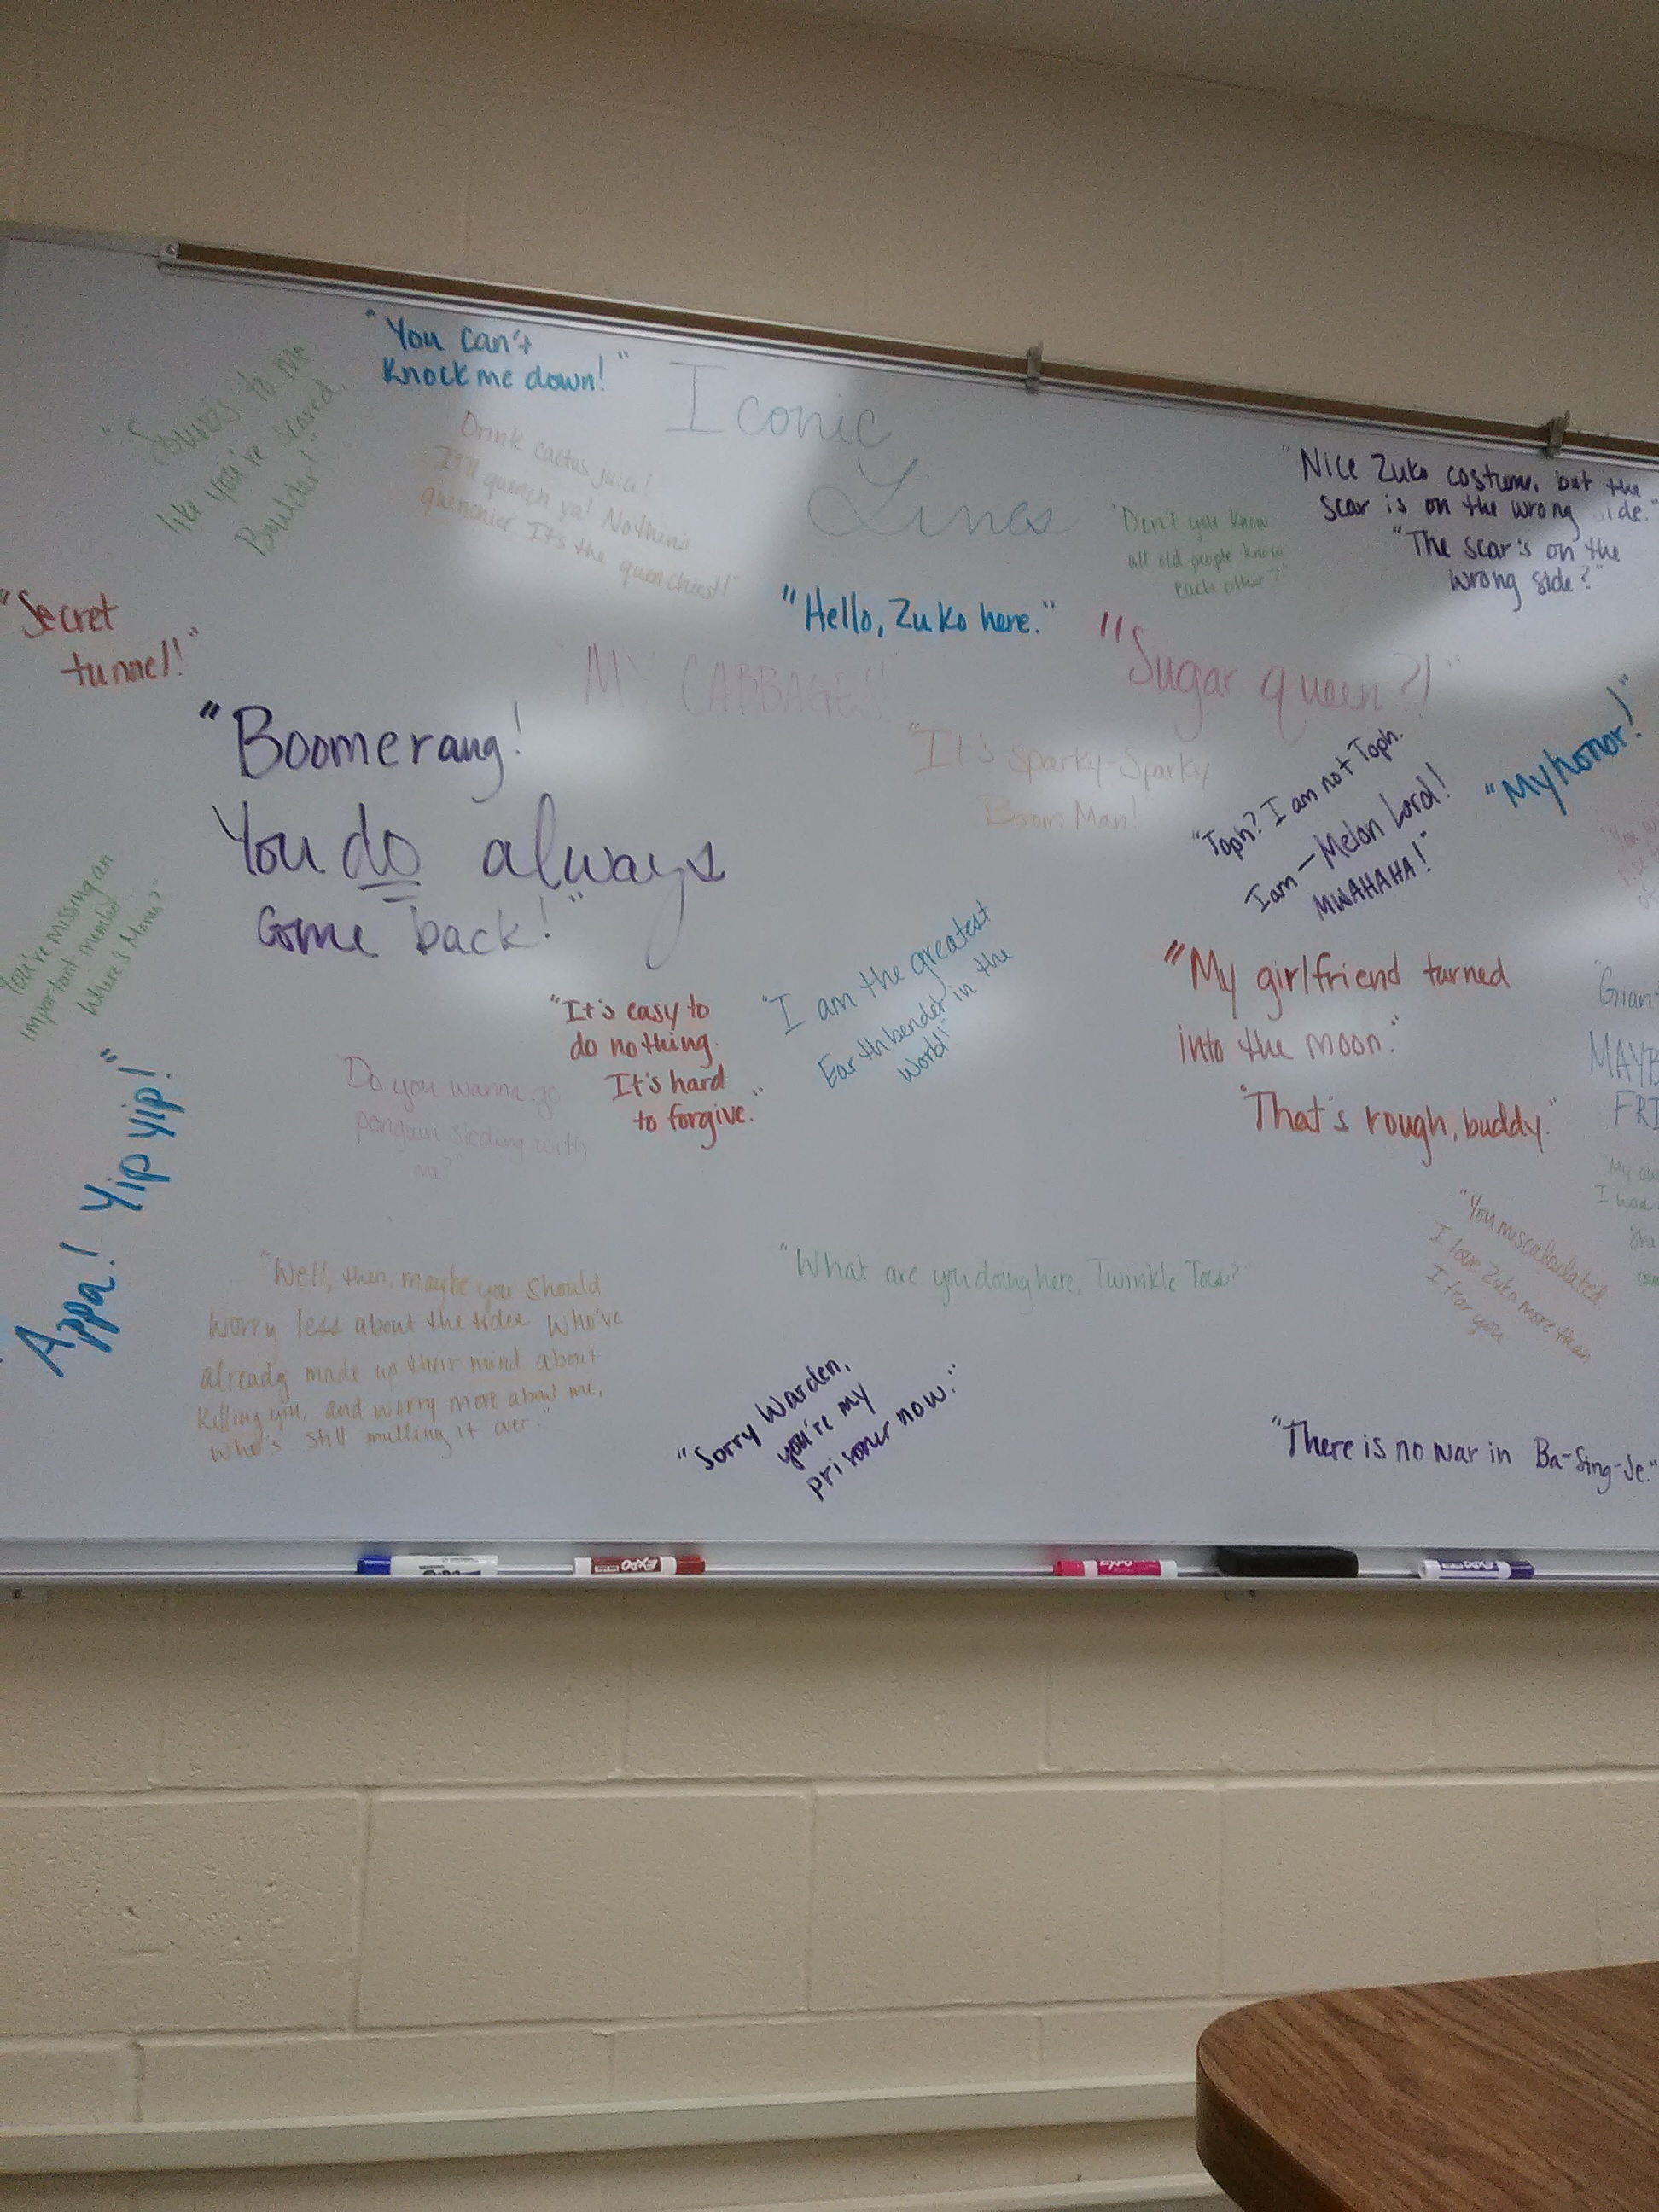 "You can't
Knock me down!"
Iconic
Lines
"Sounds to me
like you're scared,
Boulder!"
Drink cactus juice!
It'll quench ya! Nothin's
quenchier. It's the quenchiest!"
"Nice Zuko costume, but the
scar is on the wrong side."
"The scar's on the
wrong side?"
"Don't you know
all old people know
each other?"
"Secret
tunnel!"
"Hello, Zuko here."
"MY CABBAGES!"
"Sugar queen?!"
"Boomerang!
You do always
Come back!"
"It's Sparky-Sparky
Boom Man!"
"Toph? I am not Toph.
I am — Melon Lord!
MWAHAHA!"
"My honor!"
You're missing an
important member.
Where's Momo?"
"It's easy to
do nothing.
It's hard
to forgive."
"I am the greatest
Earthbender in the
World!"
"My girlfriend turned
into the moon."
"That's rough, buddy."
"Giant
MAYB
FRI
Do you wanna go
penguin sledding with
me?"
Appa! Yip yip!"
"My
I was
She
"You miscalculated
I love Zuko more than
I fear you
"Well, then, maybe you should
worry less about the tides who've
already made up their mind about
killing you, and worry more about me,
who's still mulling it over."
"What are you doing here, Twinkle Toes?"
"Sorry Warden,
you're my
prisoner now."
"There is no war in Ba-Sing-Se."
EXPO